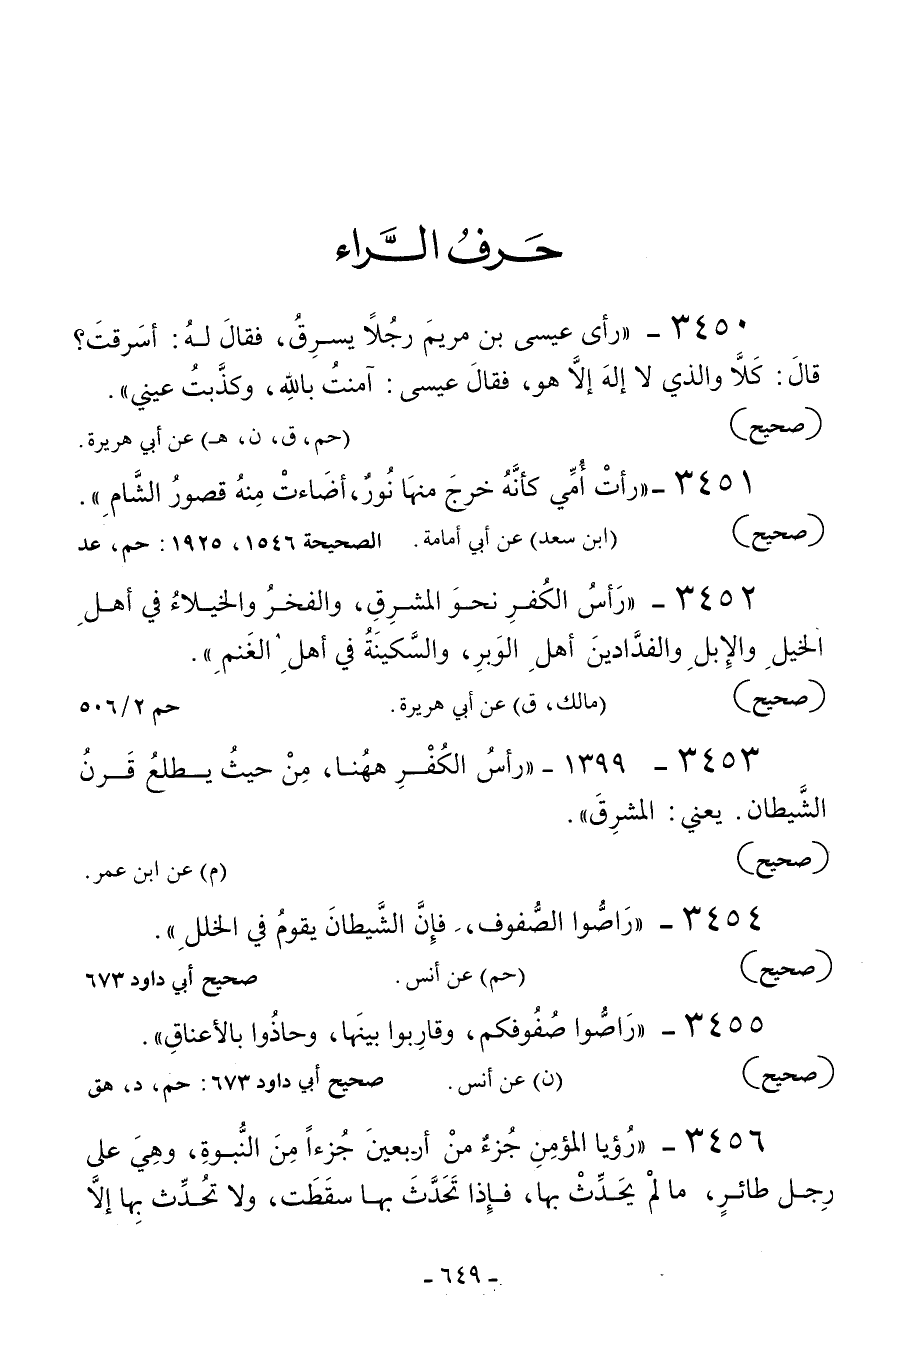 حَرفُ الرَّاء
٣٤٥٠ - «رأى عيسى بن مريمَ رجُلًا يسرِقُ، فقالَ لهُ: أسَرقتَ؟
قالَ: كَلَّا والذي لا إلهَ إلَّا هو، فقالَ عيسى: آمنتُ باللهِ، وكذَّبتُ عيني».
(صحيح) (حم، ق، ن، هـ) عن أبي هريرة.
٣٤٥١ - «رأتْ أُمِّي كأنَّهُ خرجَ منهَا نُورٌ، أضَاءتْ مِنهُ قصورُ الشَّامِ».
(صحيح) (ابن سعد) عن أبي أمامة. الصحيحة ١٥٤٦، ١٩٢٥: حم، عد
٣٤٥٢ - «رَأسُ الكُفرِ نحوَ المشرِقِ، والفخرُ والخيلاءُ في أهلِ
الخيلِ والإبلِ والفدَّادينَ أهلِ الوَبرِ، والسَّكينَةُ في أهلِ الغَنمِ».
(صحيح) (مالك، ق) عن أبي هريرة. حم ٥٠٦/٢
٣٤٥٣ - ١٣٩٩ - «رأسُ الكُفْرِ ههُنا، مِنْ حيثُ يطلعُ قَرنُ
الشَّيطان. يعني: المشرِقَ».
(صحيح) (م) عن ابن عمر.
٣٤٥٤ - «رَاصُّوا الصُّفوف، فإنَّ الشَّيطانَ يقومُ في الخللِ».
(صحيح) (حم) عن أنس. صحيح أبي داود ٦٧٣
٣٤٥٥ - «رَاصُّوا صُفُوفكم، وقارِبوا بينَها، وحاذُوا بالأعناقِ».
(صحيح) (ن) عن أنس. صحيح أبي داود ٦٧٣: حم، د، هق
٣٤٥٦ - «رُؤيا المؤمنِ جُزءٌ منْ أربعينَ جُزءاً مِنَ النُّبوةِ، وهِيَ على
رِجلِ طائرٍ، ما لمْ يحَدِّثْ بها، فإذا تَحَدَّثَ بها سقَطَت، ولا تحُدِّث بِها إلَّا
- ٦٤٩ -